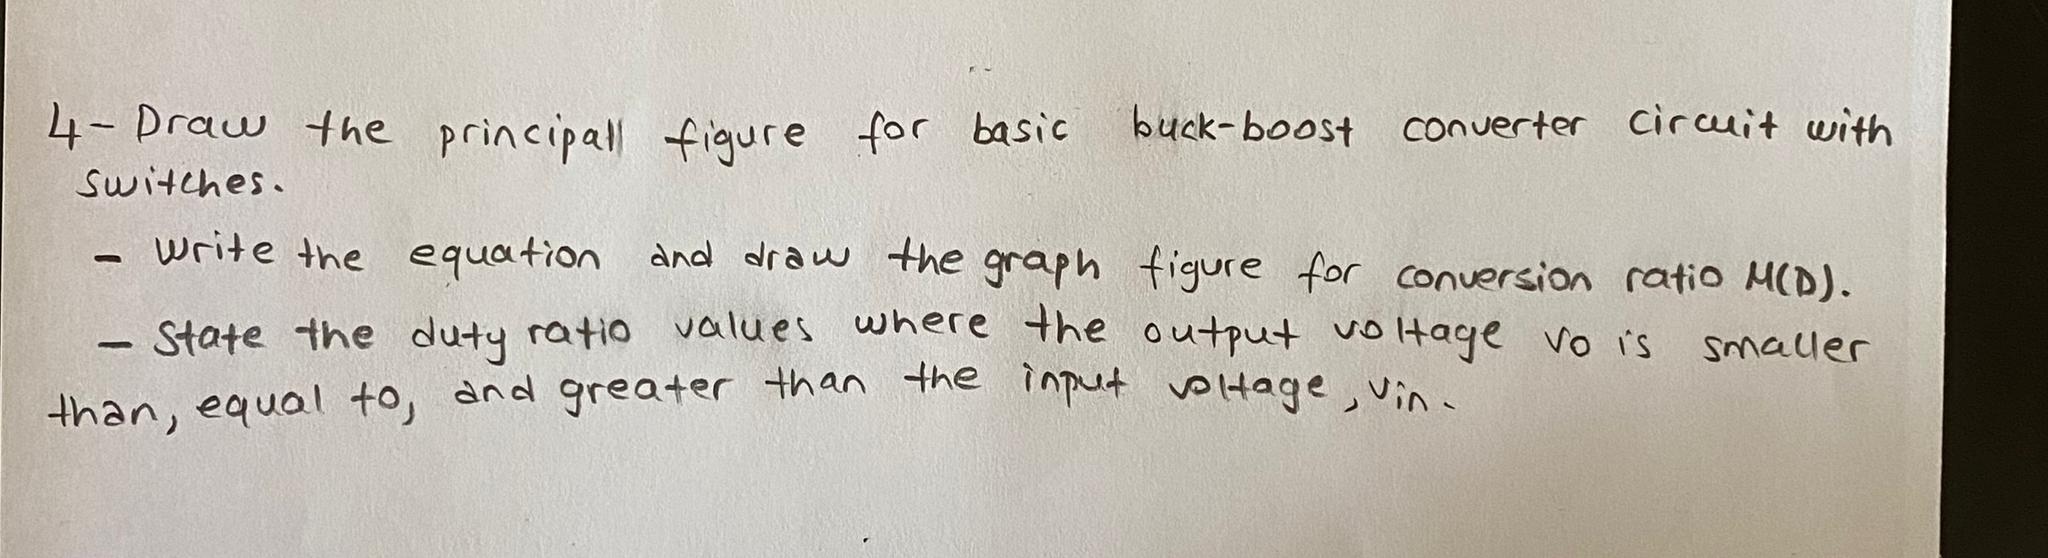 4- Draw the principall figure for basic buck-boost converter circuit with
switches.
- Write the equation and draw the graph figure for conversion ratio M(D).
- State the duty ratio values where the output voltage vo is smaller
than, equal to, and greater than the input voltage, vin.